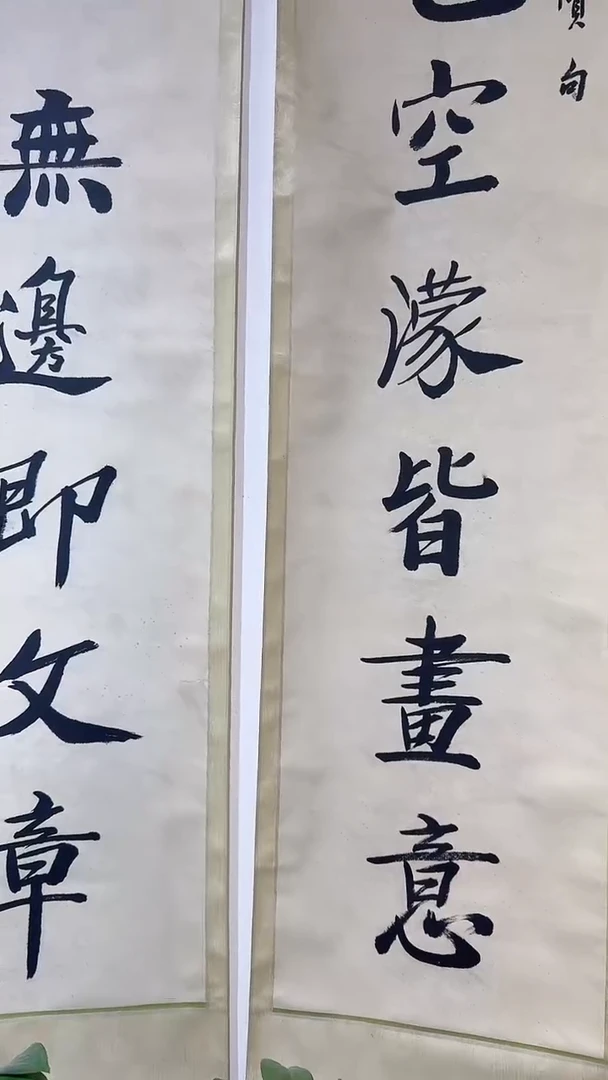 句
空濛皆畫意
無邊即文章